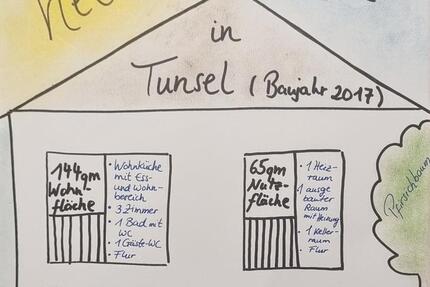 in
Tunsel (Baujahr 2017)
144qm
Wohn-
fläche
• Wohnküche
mit Ess-
und Wohn-
bereich
• 3 Zimmer
• 1 Bad mit
WC
• 1 Gäste-WC
• Flur
65qm
Nutz-
fläche
• 1 Heiz-
raum
1 ausge
bauter
Raum
mit Heizung
• 1 Keller-
raum
• Flur
Pfirsichbaum